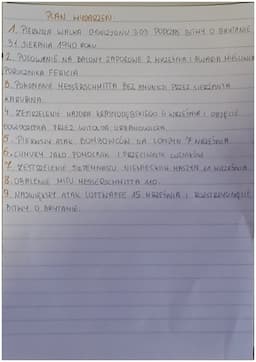 PLAN WYDARZEŃ
1. PIERWSZA WALKA DYWIZJONU 303 PODCZAS BITWY O BRYTANIĘ
31 SIERPNIA 1940 ROKU
2. POLOWANIE NA BALONY ZAPOROWE 2 WRZEŚNIA I AWARIA MYŚLIWCA
PORUCZNIKA FERICIA
3. POKONANIE MESSERSCHMITTA BEZ AMUNICJI PRZEZ SIERŻANTA
KARUBINA
4. ZESTRZELENIE MAJORA KRASNODĘBSKIEGO 6 WRZEŚNIA I OBJĘCIE
DOWODZENIA PRZEZ WITOLDA URBANOWICZA
5. PIERWSZY ATAK BOMBOWCÓW NA LONDYN 7 WRZEŚNIA
6. CHMURY JAKO POMOCNIK I PRZECIWNIK LOTNIKÓW
7. ZESTRZELENIE SIEDEMNASTU NIEMIECKICH MASZYN 11 WRZEŚNIA
8. OBALENIE MITU MESSERSCHMITTA 110
9. NAJWIĘKSZY ATAK LUFTWAFFE 15 WRZEŚNIA I ROZSTRZYGNIĘCIE
BITWY O BRYTANIĘ